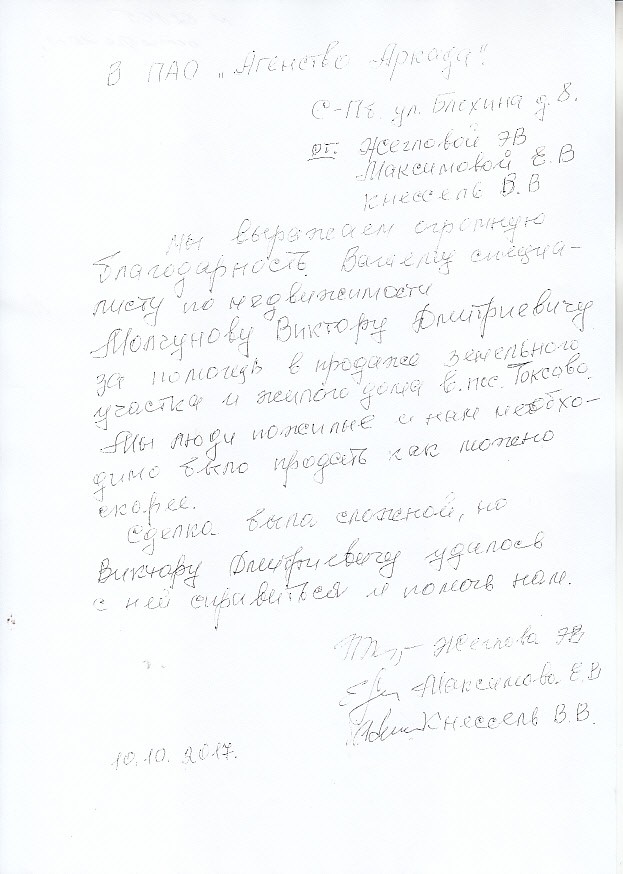 В ПАО „Агенство Аркада".
С-Пб. ул. Блохина д. 8.
от. Жегловой ЭВ
Максимовой Е. В
Кнессель В. В
Мы выражаем огромную
благодарность Вашему специа-
листу по недвижимости
Молчунову Виктору Дмитриевичу
за помощь в продаже земельного
участка и жилого дома в. пос. Токсово.
Мы люди пожилые и нам необхо-
димо было продать как можно
скорее.
Сделка была сложной, но
Виктору Дмитриевичу удалось
с ней справиться и помочь нам.
Жеглова ЭВ
Максимова Е. В
Кнессель В. В.
10.10. 2017.